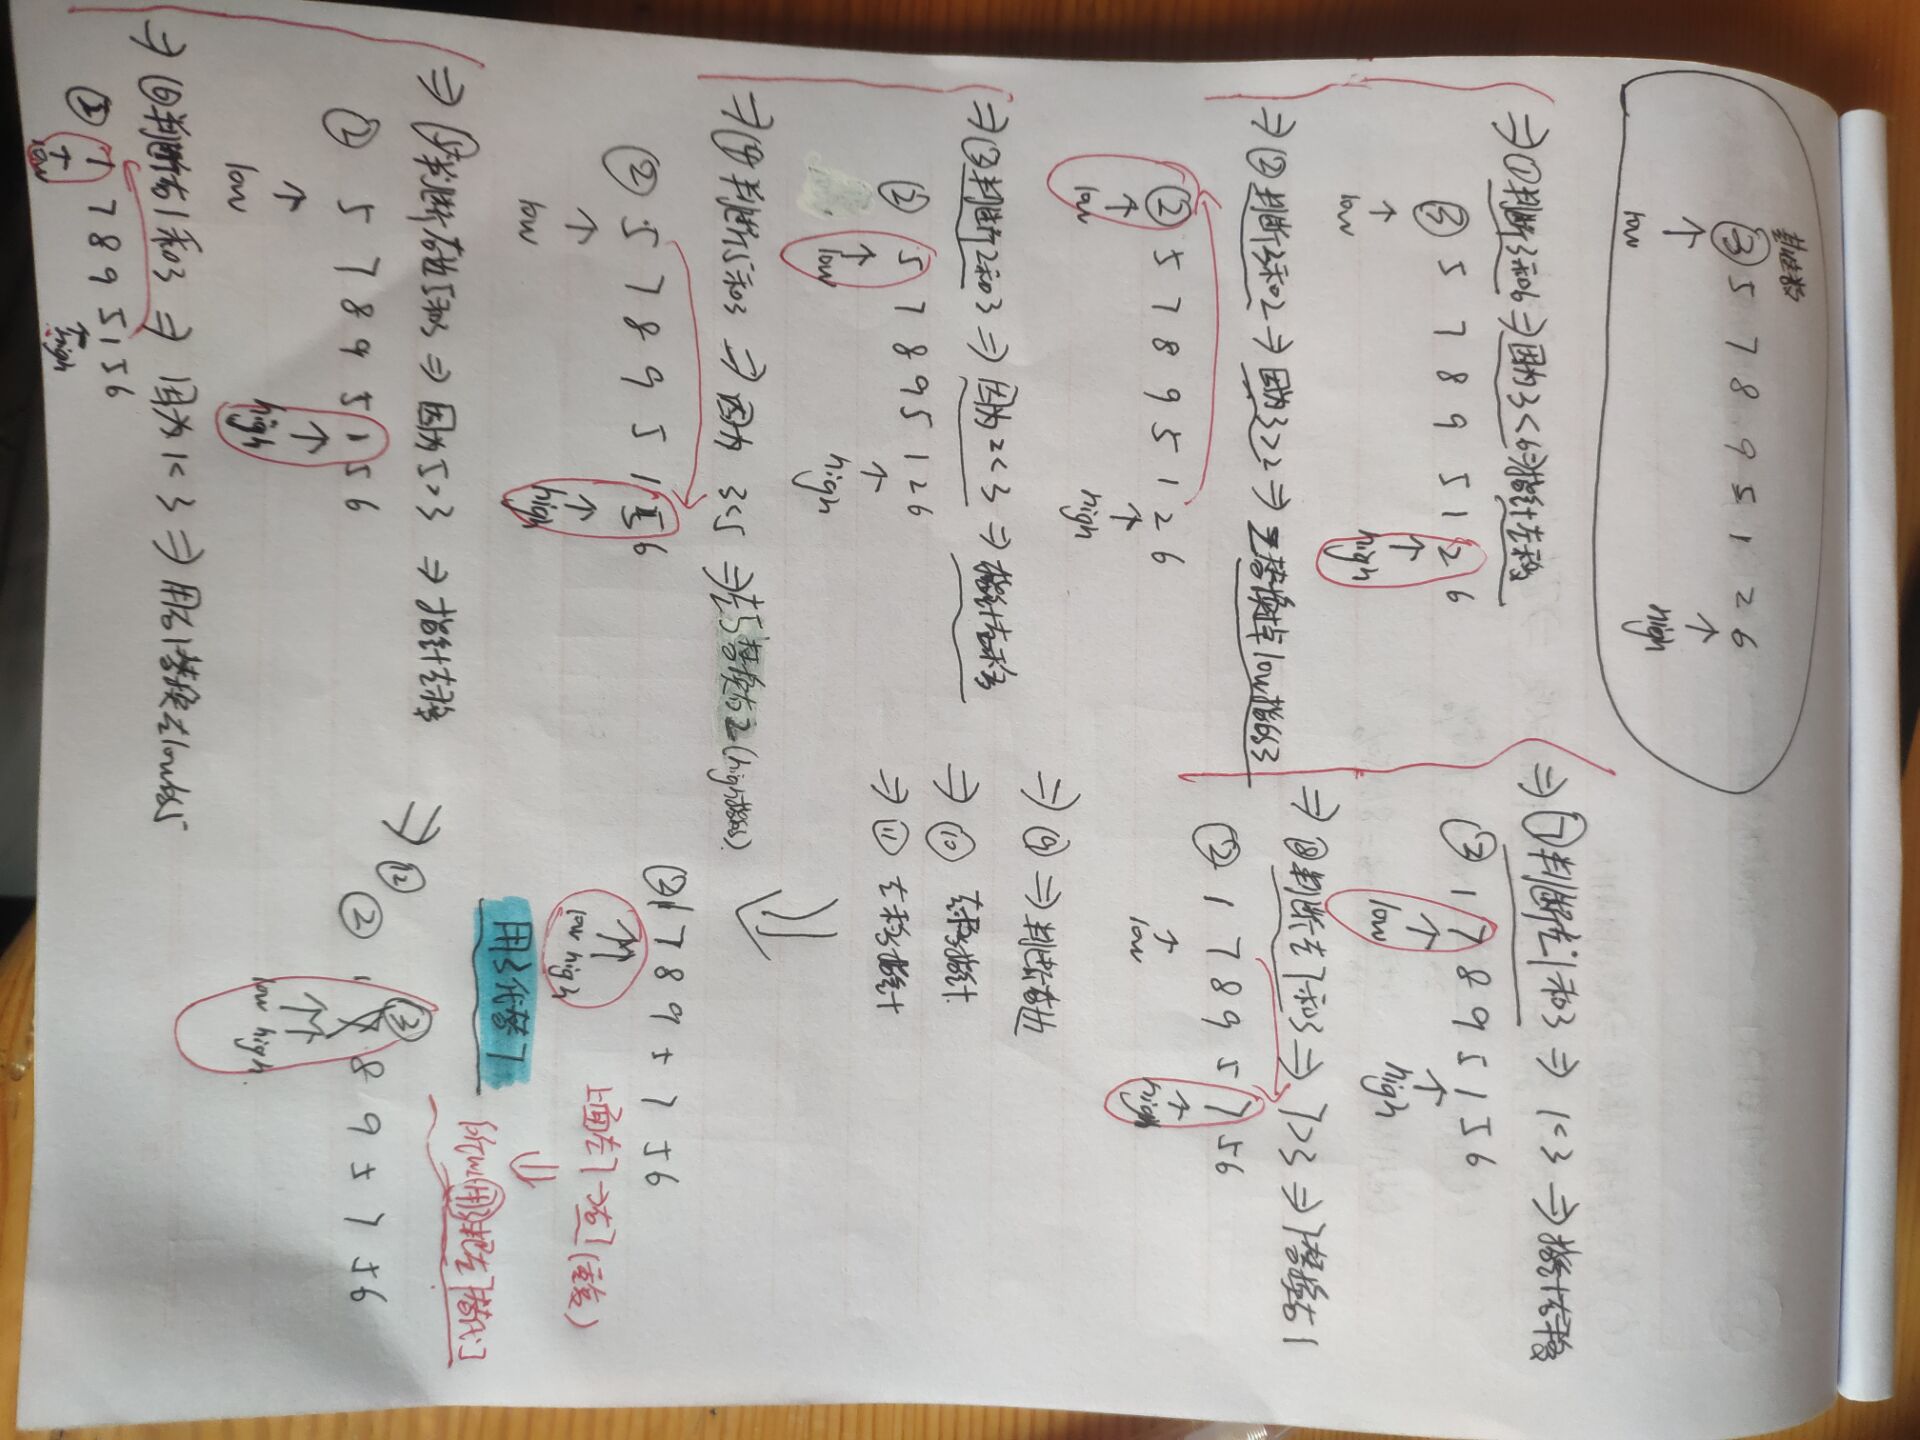 基准数
③ 5 7 8 9 5 1 2 6
↑ ↑
low high
⇒ ① 判断3和6 ⇒ 因为3<6 ⇒ 指针左移
③ 5 7 8 9 5 1 2 6
↑ ↑
low high
⇒ ② 判断3和2 ⇒ 因为3>2 ⇒ 2替换掉low指的3
② 5 7 8 9 5 1 2 6
↑ ↑
low high
⇒ ③ 判断2和3 ⇒ 因为2<3 ⇒ 指针右移
② 5 7 8 9 5 1 2 6
↑ ↑
low high
⇒ ④ 判断5和3 ⇒ 因为 3<5 ⇒ 左5替换右2(high指的)
② 5 7 8 9 5 1 5 6
↑ ↑
low high
⇒ ⑤ 判断右边5和3 ⇒ 因为5>3 ⇒ 指针左移
② 5 7 8 9 5 1 5 6
↑ ↑
low high
⇒ ⑥ 判断右1和3 ⇒ 因为1<3 ⇒ 用右1替换左low的5
② 1 7 8 9 5 1 5 6
↑ ↑
low high
⇒ ⑦ 判断左1和3 ⇒ 1<3 ⇒ 指针右移
② 1 7 8 9 5 1 5 6
↑ ↑
low high
⇒ ⑧ 判断左7和3 ⇒ 7>3 ⇒ 7替换右1
② 1 7 8 9 5 7 5 6
↑ ↑
low high
⇒ ⑨ ⇒ 判断右边
⇒ ⑩ 左移指针
⇒ ⑪ 左移指针
② 1 7 8 9 5 7 5 6
↑↑
low high
用3代替7
⇒ ⑫
② 1 ③ 8 9 5 7 5 6
↑↑
low high